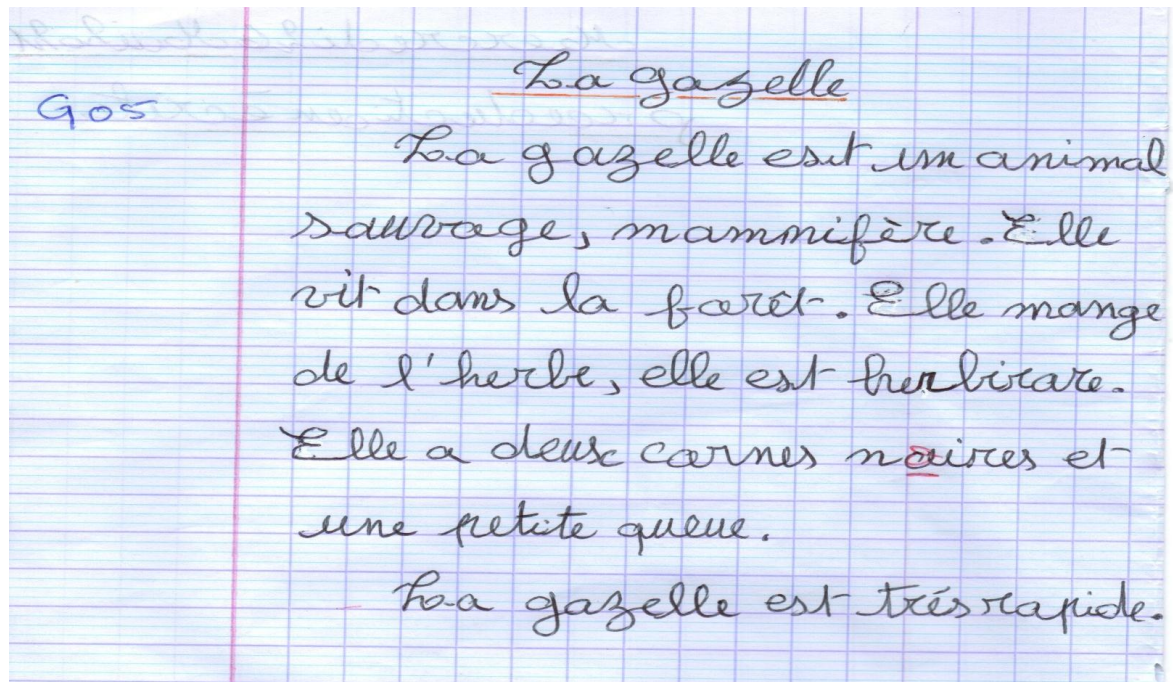 La gazelle
G05
La gazelle est un animal
sauvage, mammifère. Elle
vit dans la farêt. Elle mange
de l'herbe, elle est herbivare.
Elle a deux carnes naires et
une petite queue.
La gazelle est trés rapide.